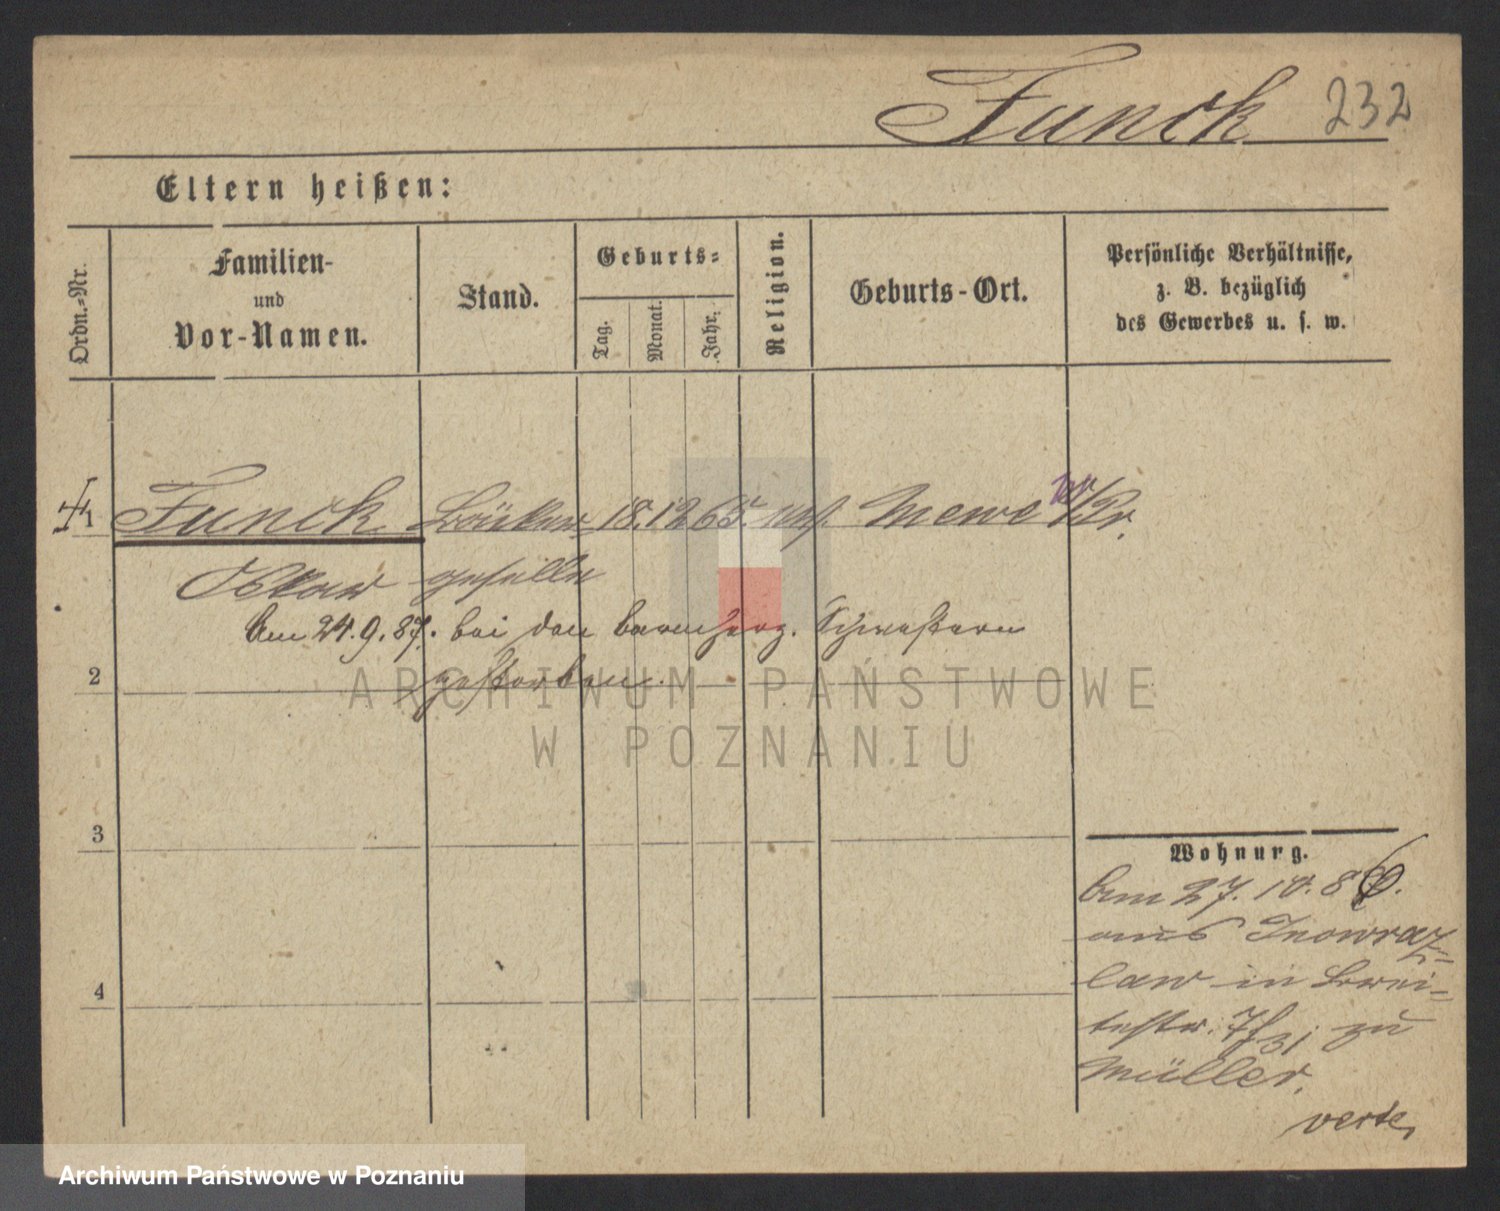 Funck 232
Eltern heißen:
Ordn.-Nr.
Familien-
und
Vor-Namen.
Stand.
Geburts-
Tag.
Monat.
Jahr.
Religion.
Geburts-Ort.
Persönliche Verhältnisse,
z. B. bezüglich
des Gewerbes u. s. w.
1 Funck Bäcker 18. 12 65 Mewe W/Pr.
Oskar geselle
Am 24. 9. 87. bei den barmherz. Schwestern
gestorben.
2
3
4
Wohnurg.
Am 27. 10. 86.
aus Inowraz-
law in Brei-
testr. 7/31 zu
Müller.
verte,
ARCHIWUM PAŃSTWOWE
W POZNANIU
Archiwum Państwowe w Poznaniu